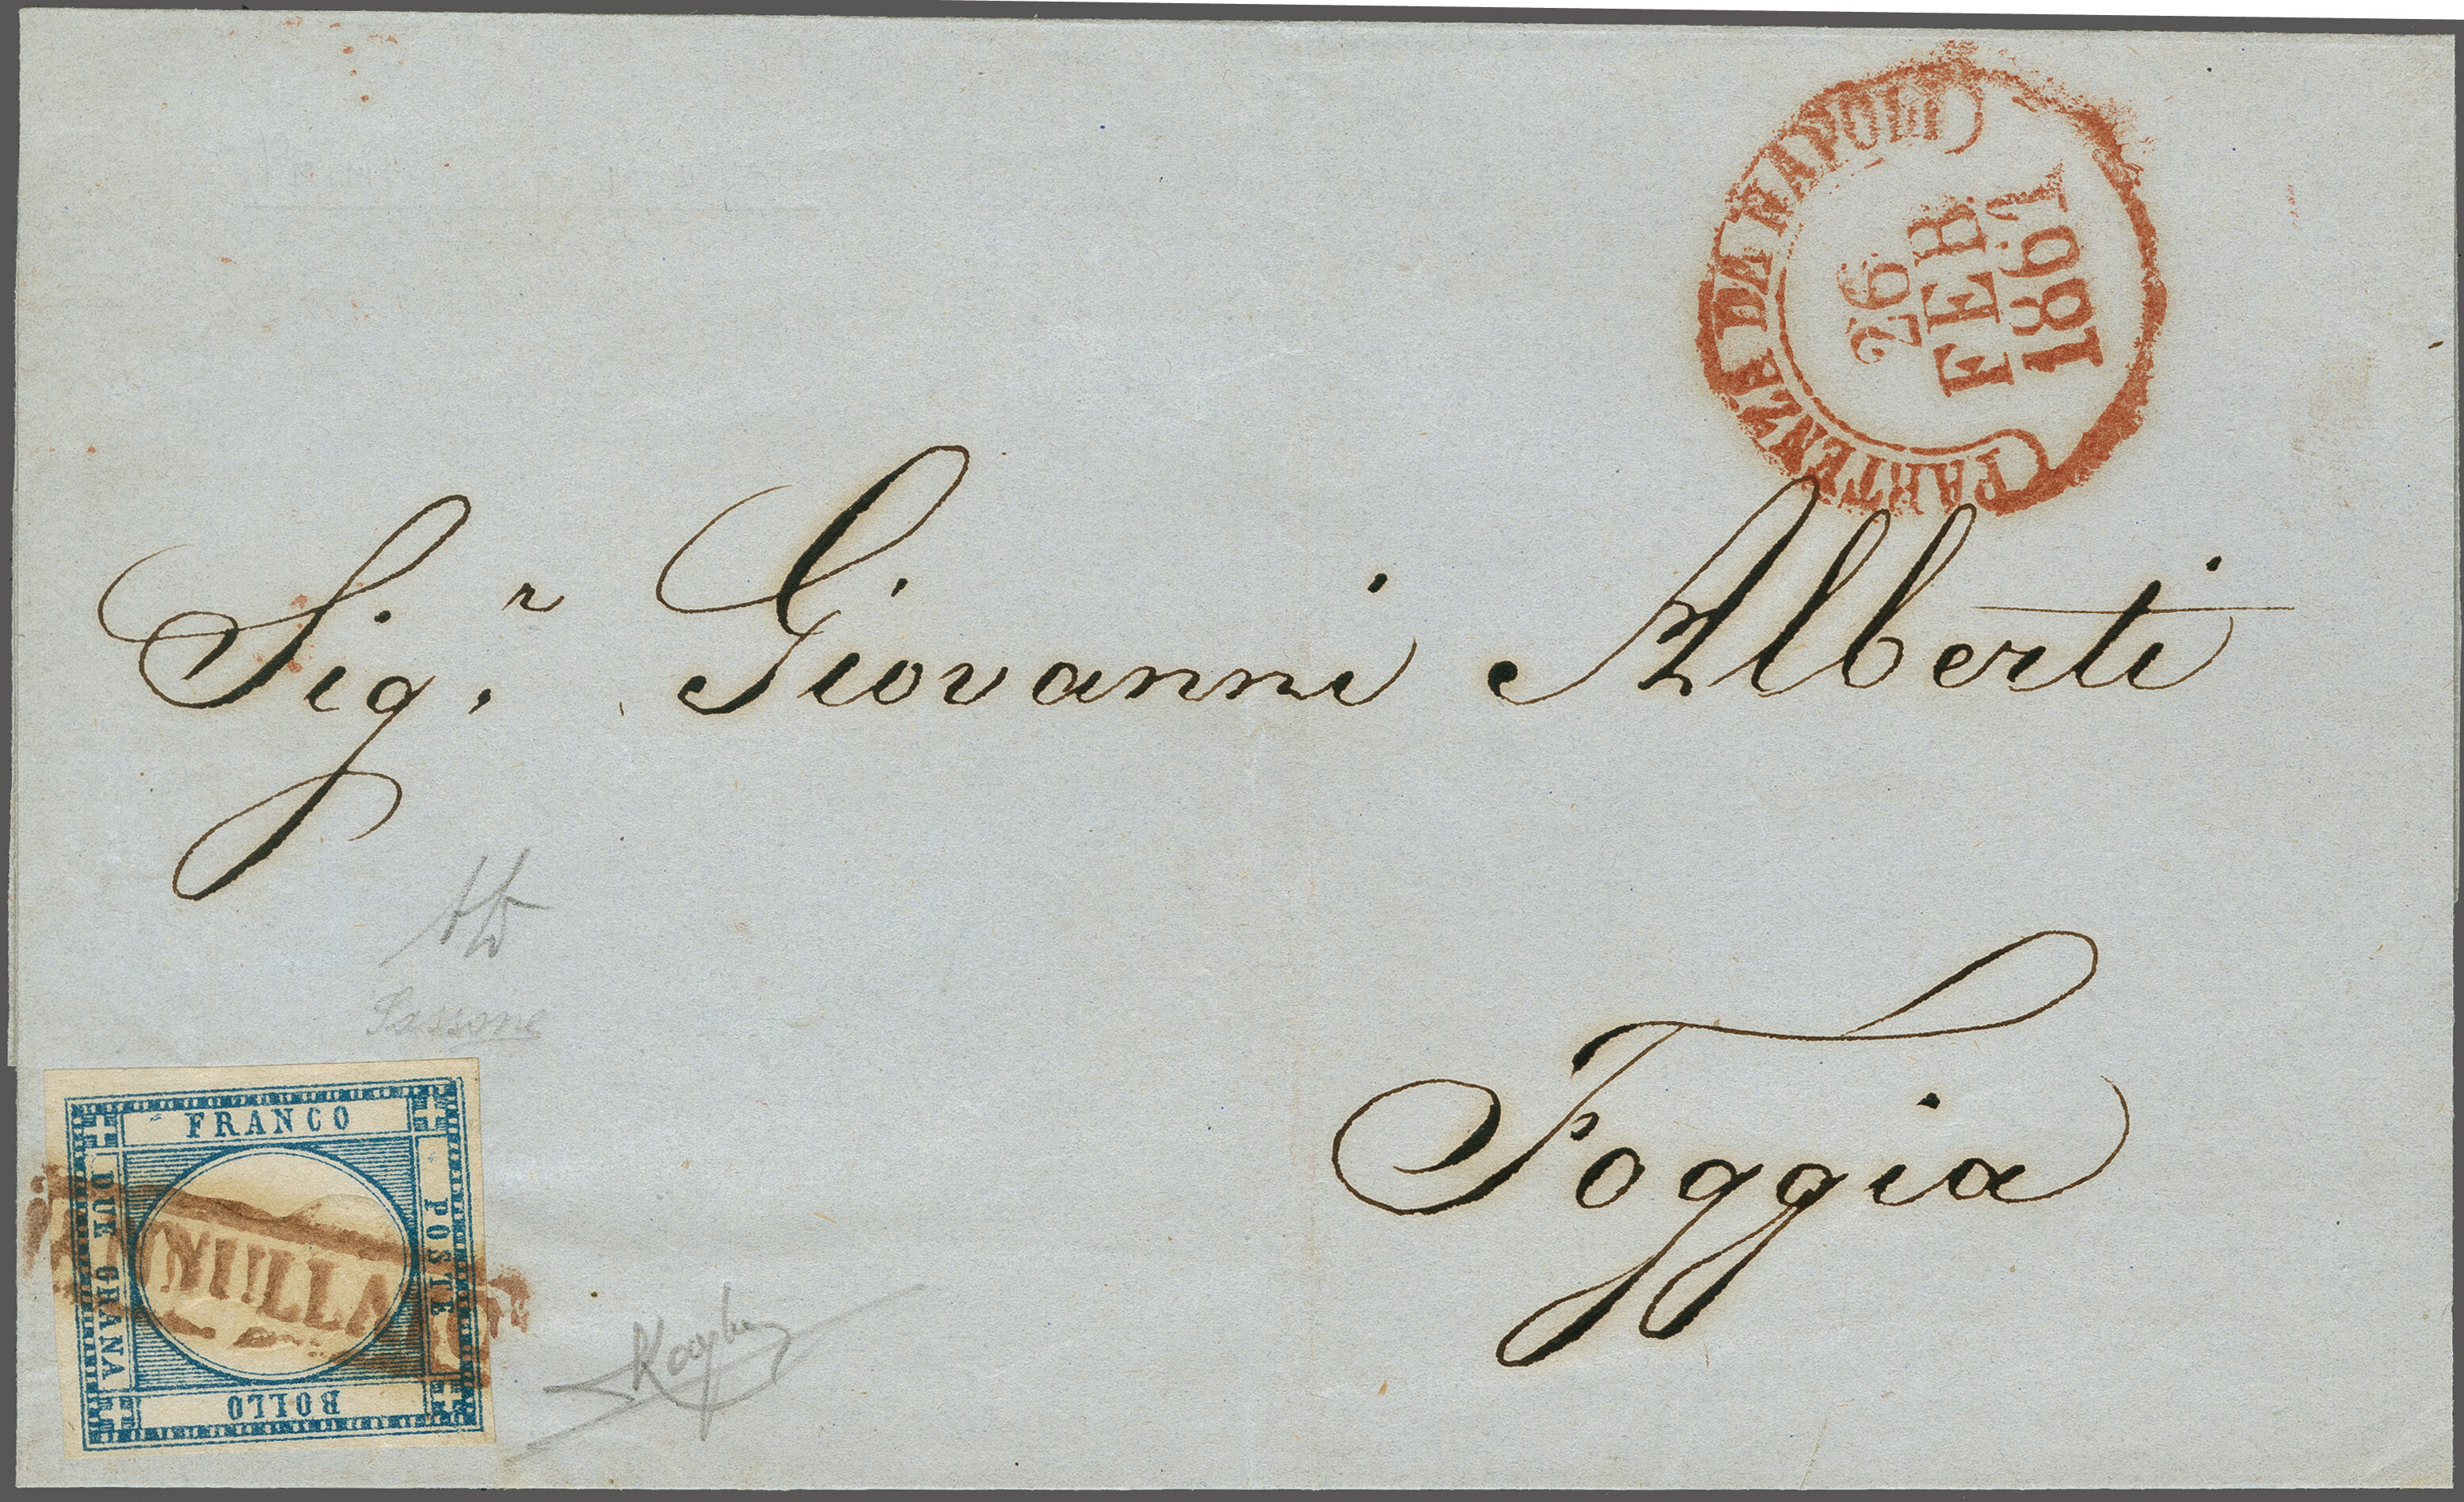 (PARTENZA DA NAPOLI)
26
FEB
1861
Sig.r Giovanni Alberti
Foggia
Sassone
FRANCO
POSTE
BOLLO
DUE GRANA
ANNULLATO